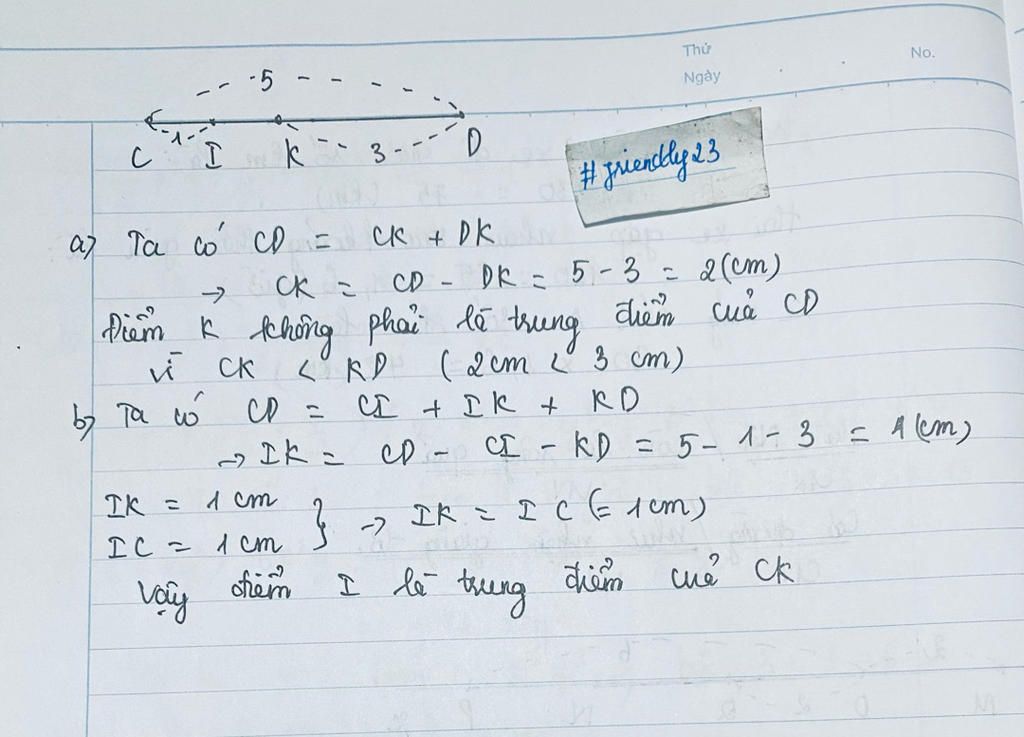 Thứ No.
Ngày
5
1 3
C I K D
#friendly23
a) Ta có CD = CK + DK
→ CK = CD - DK = 5 - 3 = 2 (cm)
Điểm K không phải là trung điểm của CD
vì CK < KD (2cm < 3 cm)
b) Ta có CD = CI + IK + KD
→ IK = CD - CI - KD = 5 - 1 - 3 = 1 (cm)
IK = 1 cm
IC = 1 cm } → IK = IC (= 1cm)
Vậy điểm I là trung điểm của CK